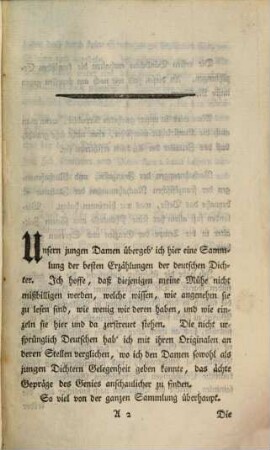 Unsern jungen Damen übergeb' ich hier eine Samm-
lung der besten Erzählungen der deutschen Dich-
ter. Ich hoffe, daß diejenigen meine Mühe nicht
mißbilligen werden, welche wissen, wie angenehm sie
zu lesen sind, wie wenig wir deren haben, und wie ein-
zeln sie hier und da zerstreuet stehen. Die nicht ur-
sprünglich Deutschen hab' ich mit ihren Originalen an
deren Stellen verglichen, wo ich den Damen sowohl als
jungen Dichtern Gelegenheit geben konnte, das ächte
Gepräge des Genies anschaulicher zu finden.
So viel von der ganzen Sammlung überhaupt.
A 2 Die